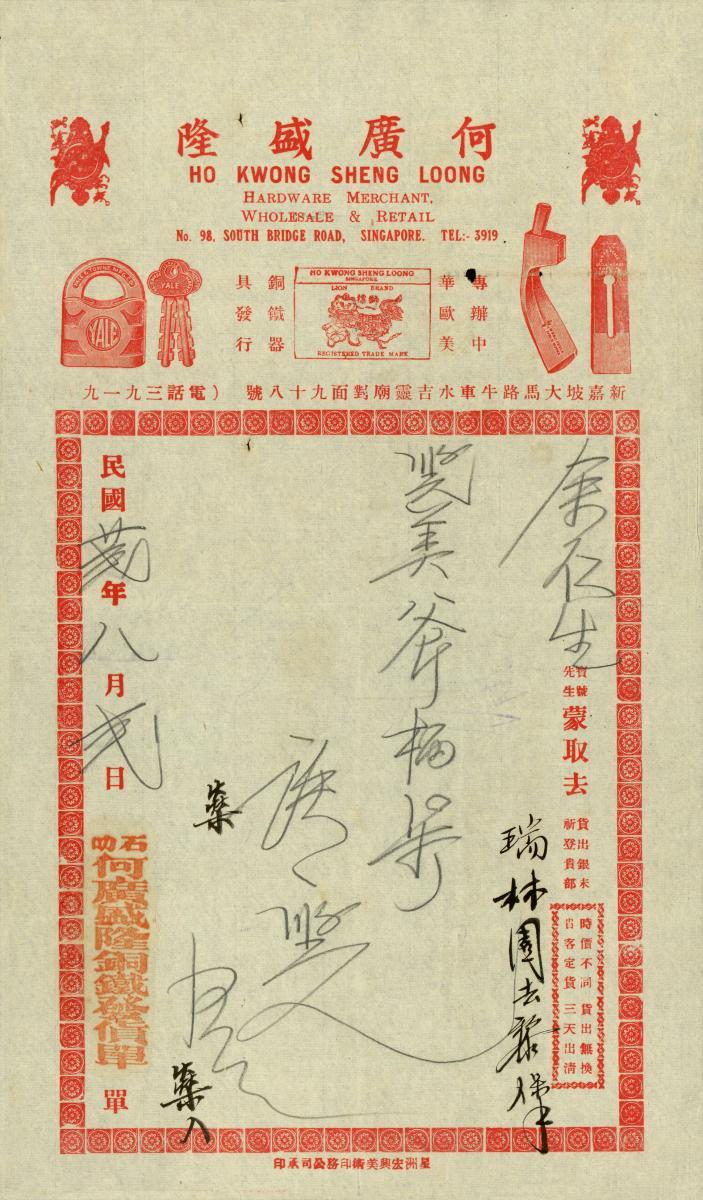 何廣盛隆
HO KWONG SHENG LOONG
HARDWARE MERCHANT,
WHOLESALE & RETAIL
No. 98, SOUTH BRIDGE ROAD, SINGAPORE. TEL:- 3919
專辦中
華歐美
HO KWONG SHENG LOONG
SINGAPORE
LION BRAND
獅標
REGISTERED TRADE MARK
銅鐵器
具發行
YALE
YALE
新嘉坡大馬路牛車水吉靈廟對面九十八號 （電話三九一九
余仁生
寶號
先生
蒙取去
貨出銀未
祈登貴部
時價不同 貨出無換
貴客定貨 三天出清
瑞林園去
美斧
民國 年八月弍日
石叻
何廣盛隆銅鐵發價單
單
星洲宏興美術印務公司承印